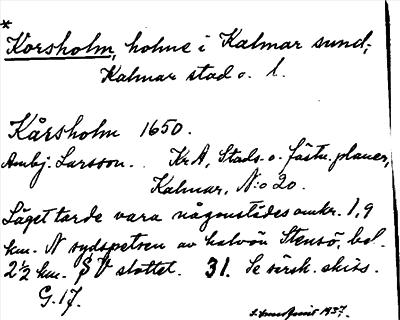 *
Korsholm, holme i Kalmar sund,
Kalmar stad o. l.
Kårsholm 1650.
Ambj. Larsson. Kr A, Stads- o. fästn. planer,
Kalmar, N:o 20.
Läget torde vara någonstädes omkr. 1,9
km. N sydspetsen av halvön Stensö, bel.
2½ km. SV slottet. 31. Se särsk. skiss.
G. 17.
1937.